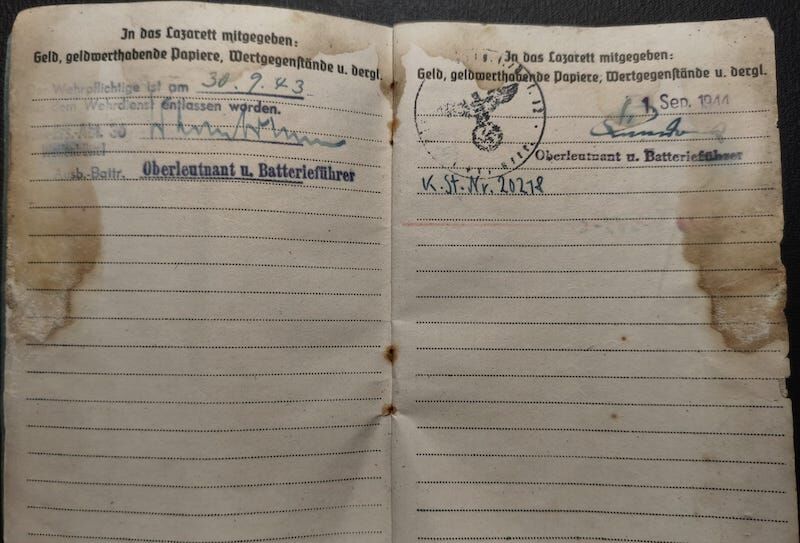 In das Lazarett mitgegeben:
Geld, geldwerthabende Papiere, Wertgegenstände u. dergl.
Wehrpflichtige ist am 30.9.43
dem Wehrdienst entlassen worden.
30
Ausb.-Battr. Oberleutnant u. Batterieführer
In das Lazarett mitgegeben:
Geld, geldwerthabende Papiere, Wertgegenstände u. dergl.
1. Sep. 1944
Oberleutnant u. Batterieführer
K.St.Nr. 20218